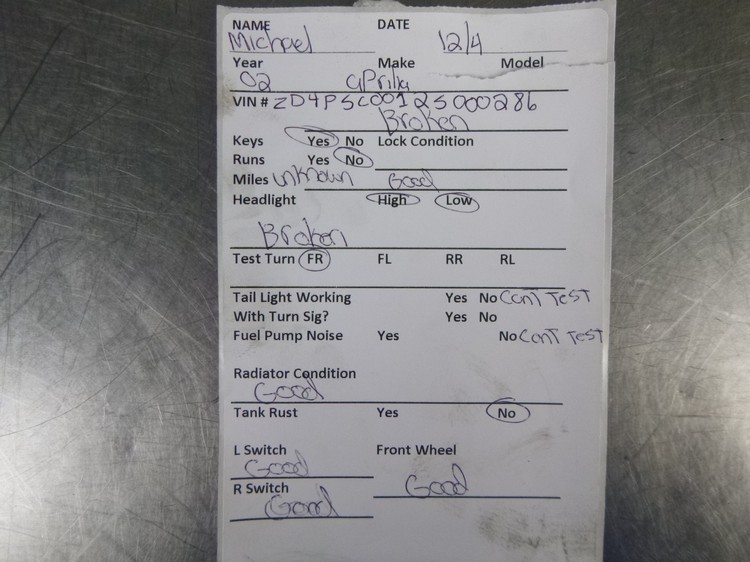 NAME DATE
Michael 12/4
Year Make Model
02 aprilia
VIN # ZD4PSC00125000286
Broken
Keys Yes No Lock Condition
Runs Yes No
Miles unknown Good
Headlight High Low
Broken
Test Turn FR FL RR RL
Tail Light Working Yes No Cant Test
With Turn Sig? Yes No
Fuel Pump Noise Yes No Cant Test
Radiator Condition
Good
Tank Rust Yes No
L Switch Front Wheel
Good
R Switch Good
Good